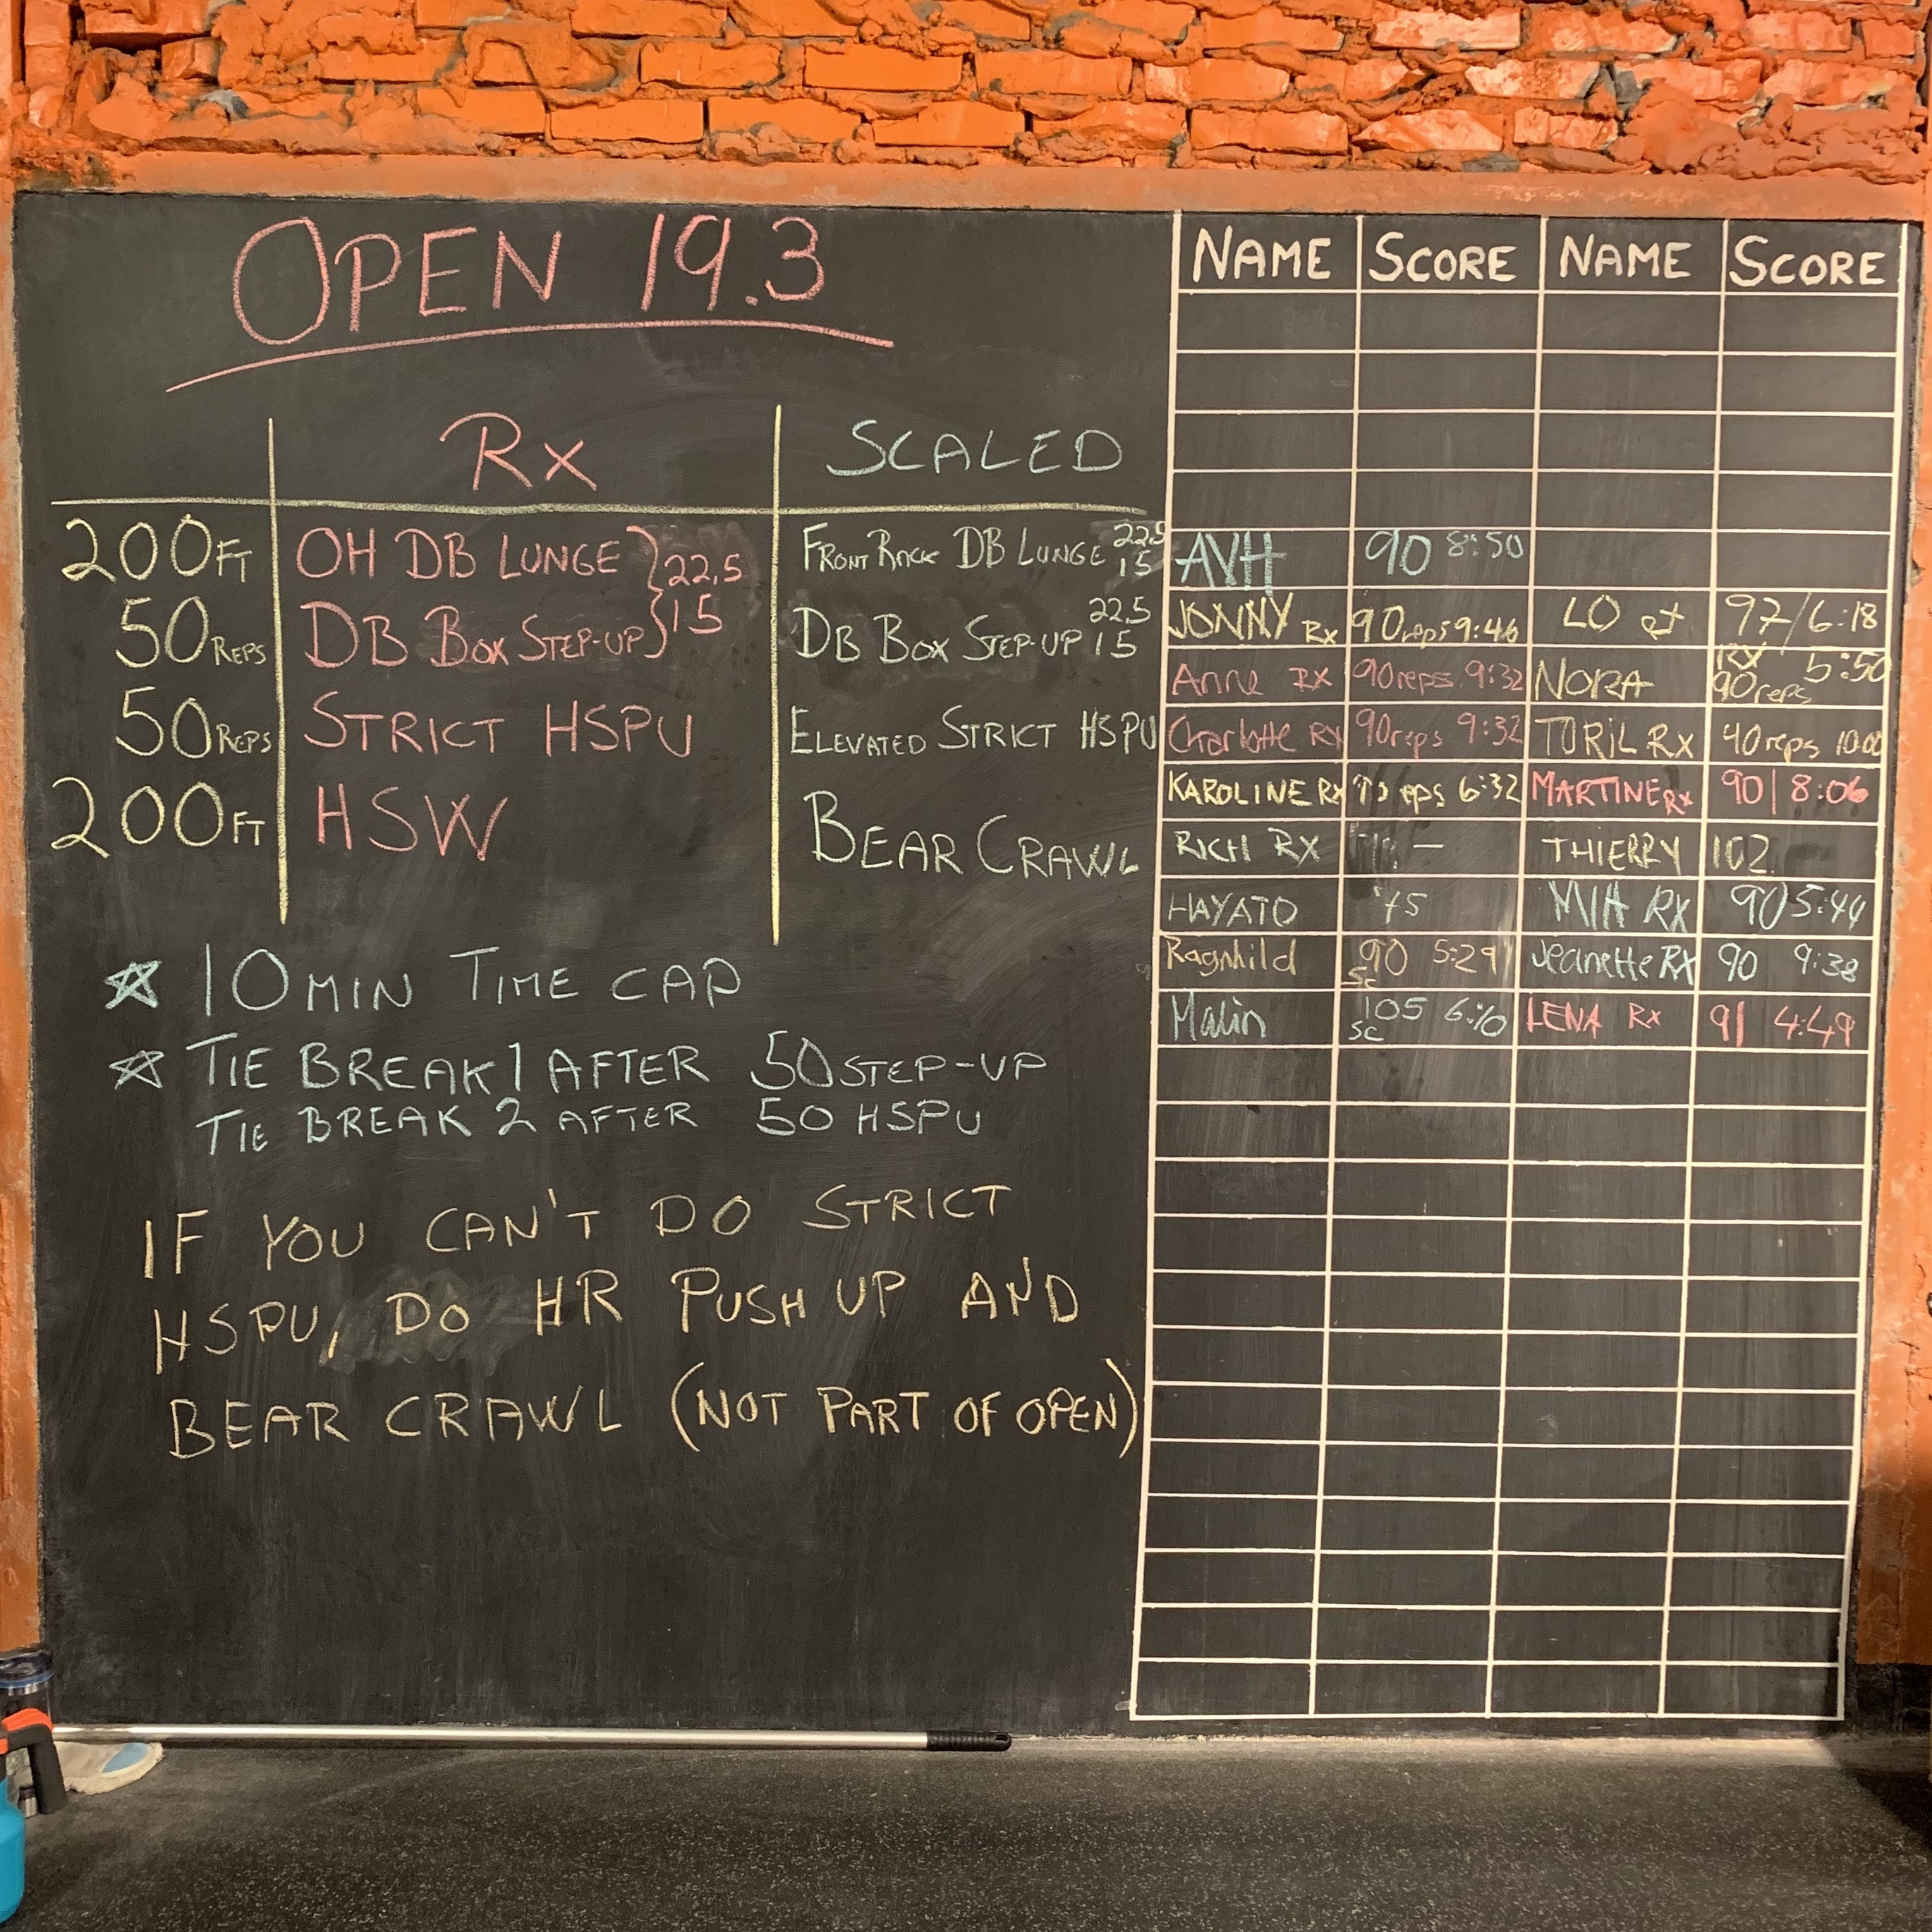 OPEN 19.3
Rx SCALED
200FT OH DB LUNGE 22.5 15 FRONT RACK DB LUNGE 22.5 15
50REPS DB BOX STEP-UP DB BOX STEP-UP 22.5 15
50REPS STRICT HSPU ELEVATED STRICT HSPU
200FT HSW BEAR CRAWL
10 MIN TIME CAP
TIE BREAK 1 AFTER 50 STEP-UP
TIE BREAK 2 AFTER 50 HSPU
IF YOU CAN'T DO STRICT
HSPU, DO HR PUSH UP AND
BEAR CRAWL (NOT PART OF OPEN)
NAME SCORE NAME SCORE
AVH 90 8:50
JONNY Rx 90reps 9:46 LO 97/6:18
Anne Rx 90reps 9:32 NORA RX 90reps 5:50
Charlotte Rx 90reps 9:32 TORIL Rx 40reps 10:00
KAROLINE Rx reps 6:32 MARTINE Rx 90| 8:06
RICH RX — THIERRY 102
HAYATO 75 MIA RX 90/5:44
Ragnhild 90 5:29 Sc Jeanette RX 90 9:38
Malin 105 6:10 SC LENA Rx 91 4:49